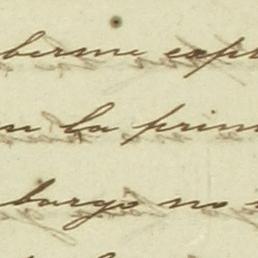 berme exp
n la prim
bargo no